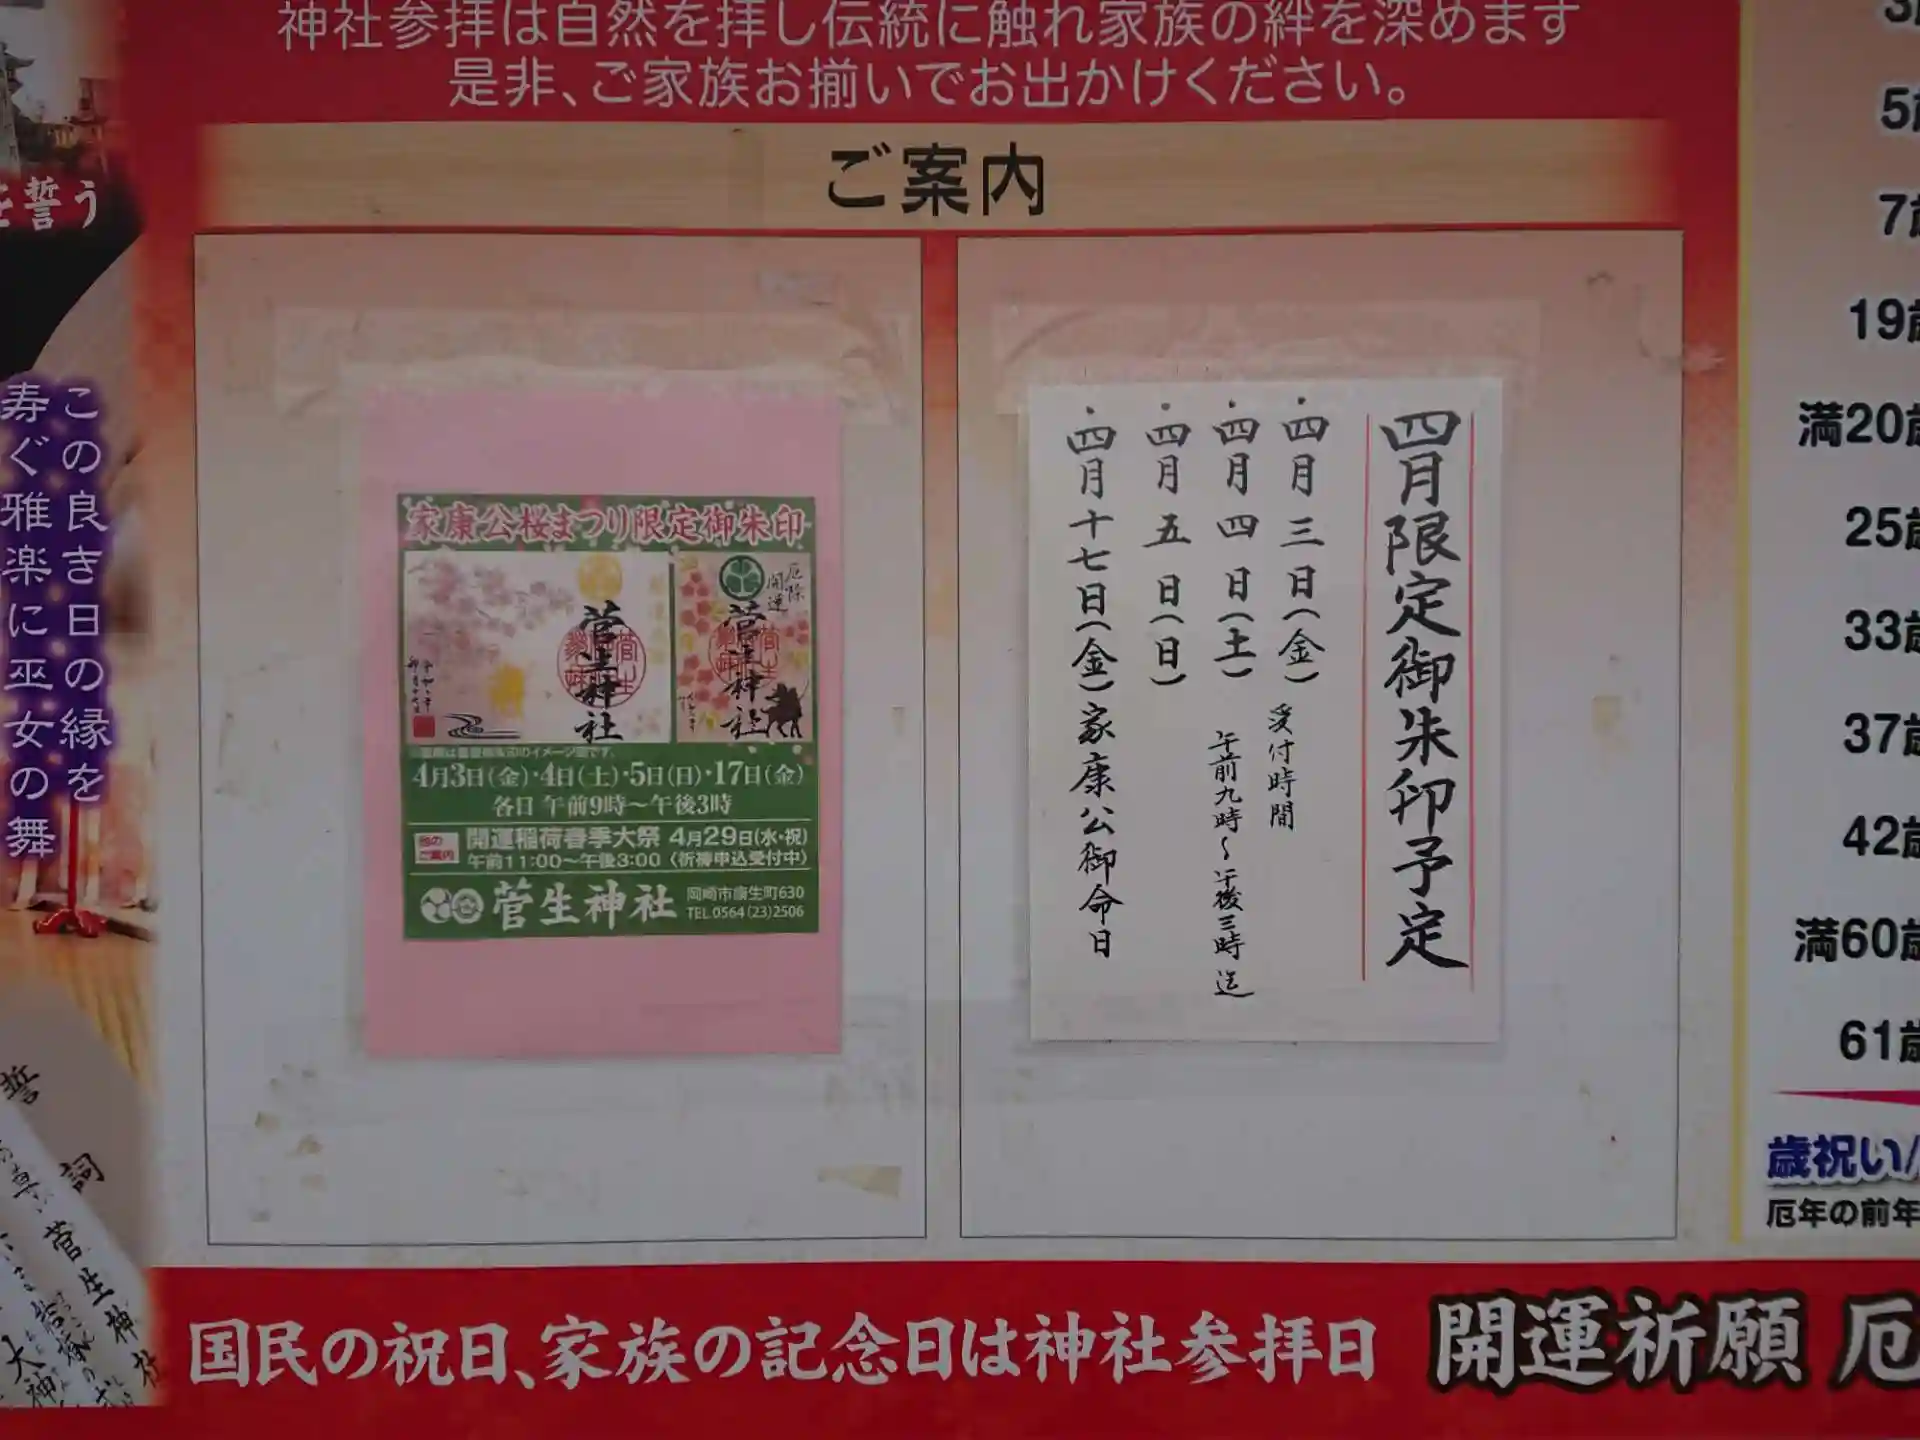 神社参拝は自然を拝し伝統に触れ家族の絆を深めます
是非、ご家族お揃いでお出かけください。
ご案内
を誓う
この良き日の縁を
寿ぐ雅楽に巫女の舞
家康公桜まつり限定御朱印
菅生神社
厄除
開運
菅生神社
4月3日(金)・4日(土)・5日(日)・17日(金)
各日 午前9時〜午後3時
他の
ご案内
開運稲荷春季大祭 4月29日(水・祝)
午前11:00〜午後3:00〈祈祷申込受付中〉
菅生神社
岡崎市康生町630
TEL.0564(23)2506
四月限定御朱印予定
・四月三日(金)
受付時間
・四月四日(土)
午前九時〜午後三時迄
・四月五日(日)
・四月十七日(金)家康公御命日
5歳
7歳
19歳
満20歳
25歳
33歳
37歳
42歳
満60歳
61歳
歳祝い/
厄年の前年
誓詞
菅生神社
大神
国民の祝日、家族の記念日は神社参拝日
開運祈願 厄